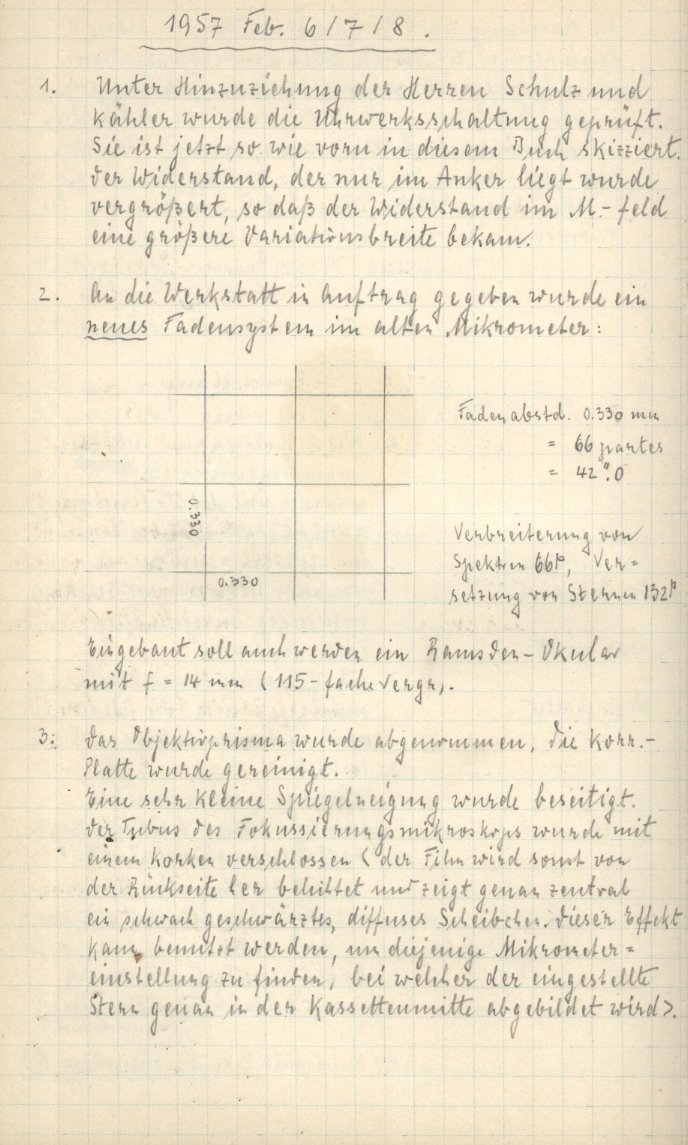 1957 Feb. 6/7/8.
1. Unter Hinzuziehung der Herren Schulz und
Kähler wurde die Uhrwerksschaltung geprüft.
Sie ist jetzt so wie vorn in diesem Buch skizziert.
Der Widerstand, der nur im Anker liegt wurde
vergrößert, so daß der Widerstand im M.-feld
eine größere Variationsbreite bekam.
2. An die Werkstatt in Auftrag gegeben wurde ein
neues Fadensystem im alten Mikrometer:
Fadenabstd. 0.330 mm
= 66 partes
= 42".0
0.330
0.330
Verbreiterung von
Spektren 66p, Ver=
setzung von Sternen 132p
Eingebaut soll auch werden ein Ramsden-Okular
mit f = 14 mm (115-fache Vergr.).
3. Das Objektivprisma wurde abgenommen, die Korr.-
Platte wurde gereinigt.
Eine sehr kleine Spiegelneigung wurde beseitigt.
Der Tubus des Fokussierungsmikroskops wurde mit
einem Korken verschlossen < der Film wird sonst von
der Rückseite her belichtet und zeigt genau zentral
ein schwach geschwärztes, diffuses Scheibchen. Dieser Effekt
kann benutzt werden, um diejenige Mikrometer=
einstellung zu finden, bei welcher der eingestellte
Stern genau in der Kassettenmitte abgebildet wird >.